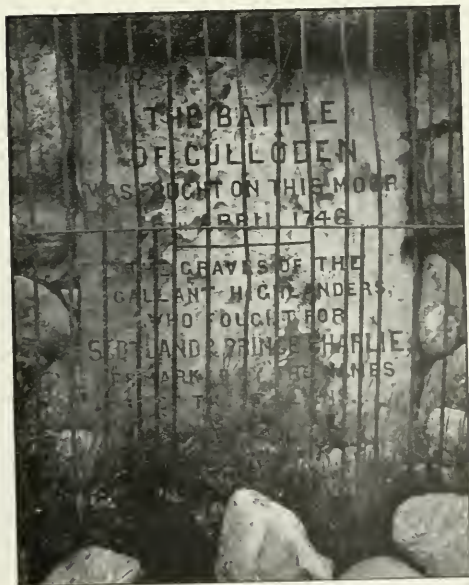 THE BATTLE
OF CULLODEN
WAS FOUGHT ON THIS MOOR
APRIL 1746
THE GRAVES OF THE
GALLANT HIGHLANDERS
WHO FOUGHT FOR
SCOTLAND & PRINCE CHARLIE
ARE MARKED BY THE NAMES